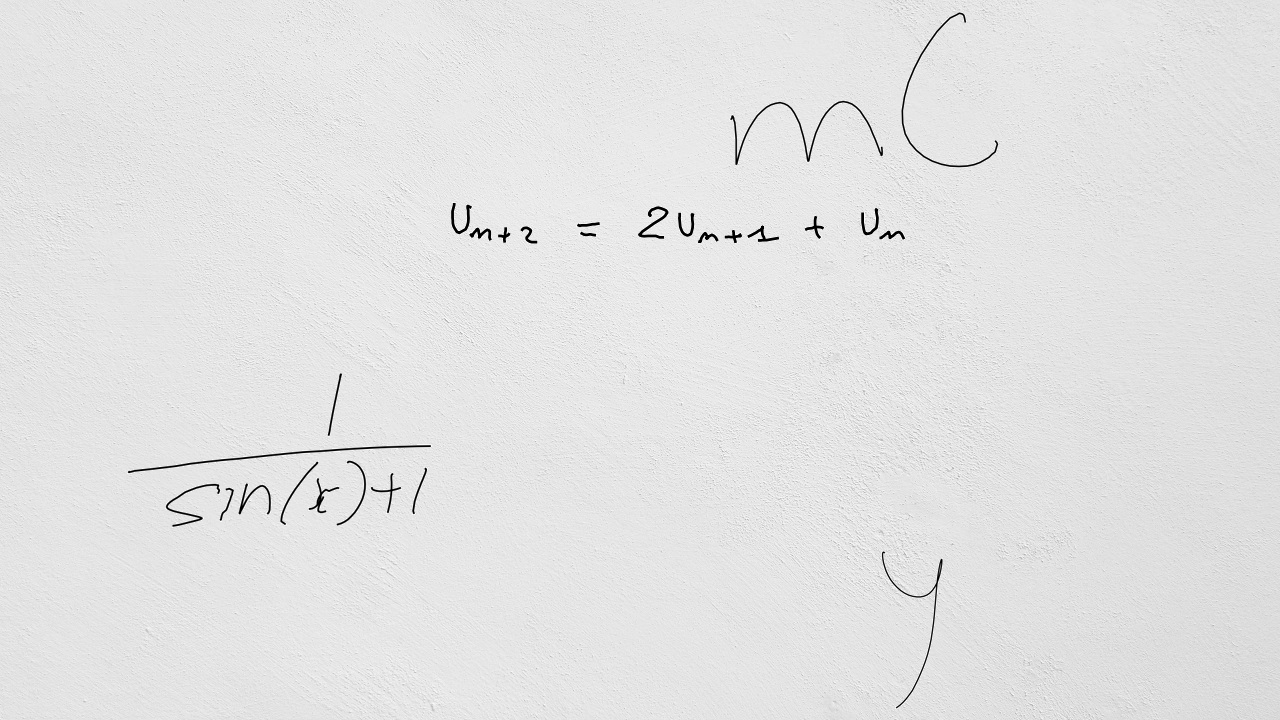 mC
U_{n+2} = 2U_{n+1} + U_n
\frac{1}{sin(x)+1}
y